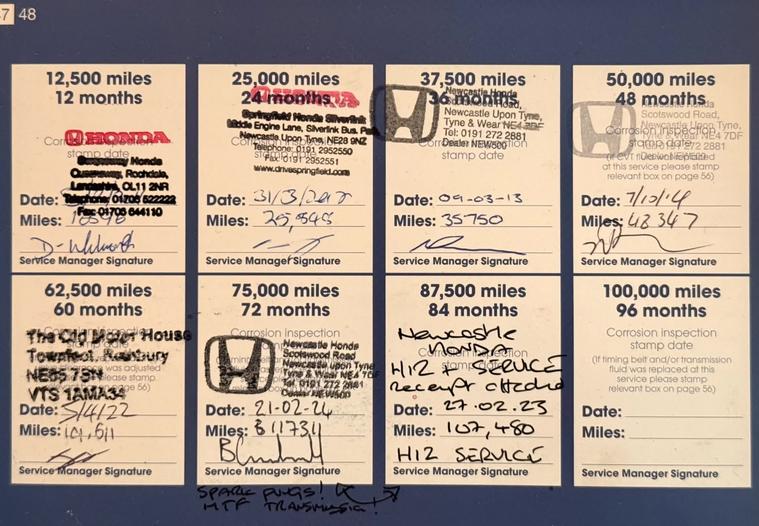 7 48
12,500 miles
12 months
HONDA
Corrosion Inspection
stamp date
Honda
Queensway, Rochdale,
Lancashire, OL11 2NR
Telephone: 01706 522222
Fax: 01706 644110
Date:
Miles:
Service Manager Signature
25,000 miles
24 months
HONDA
Springfield Honda Silverlink
Middle Engine Lane, Silverlink Bus. Park
Newcastle Upon Tyne, NE28 9NZ
Telephone: 0191 2952550
Fax: 0191 2952551
www.drivespringfield.com
stamp date
Date: 31/3/2012
Miles: 25,548
Service Manager Signature
37,500 miles
36 months
Newcastle Honda
Scotswood Road,
Newcastle Upon Tyne,
Tyne & Wear NE4 7DF
Tel: 0191 272 2881
Dealer NEW500
stamp date
Date: 09-03-13
Miles: 35750
Service Manager Signature
50,000 miles
48 months
Newcastle Honda
Scotswood Road,
Newcastle Upon Tyne,
Tyne & Wear NE4 7DF
Tel: 0191 272 2881
Dealer NEW500
Corrosion Inspection
stamp date
(If CVT fluid was replaced
at this service please stamp
relevant box on page 56)
Date: 7/10/14
Miles: 48347
Service Manager Signature
62,500 miles
60 months
The Old Motor House
Townfoot, Rothbury
NE65 7SN
VTS 1AMA34
Date: 5/4/22
Miles: 101,611
Service Manager Signature
75,000 miles
72 months
Corrosion Inspection
Newcastle Honda
Scotswood Road
Newcastle upon Tyne
Tyne & Wear NE4 7DF
Tel. 0191 272 2881
Dealer NEW500
Date: 21-02-24
Miles: 117311
Service Manager Signature
SPARK PLUGS!
MTF TRANSMISSIO!
87,500 miles
84 months
Newcastle
HONDA
H12 + SERVICE
receipt attached
Date: 27.02.23
Miles: 107,480
H12 SERVICE
Service Manager Signature
100,000 miles
96 months
Corrosion Inspection
stamp date
(If timing belt and/or transmission
fluid was replaced at this
service please stamp
relevant box on page 56)
Date:
Miles:
Service Manager Signature